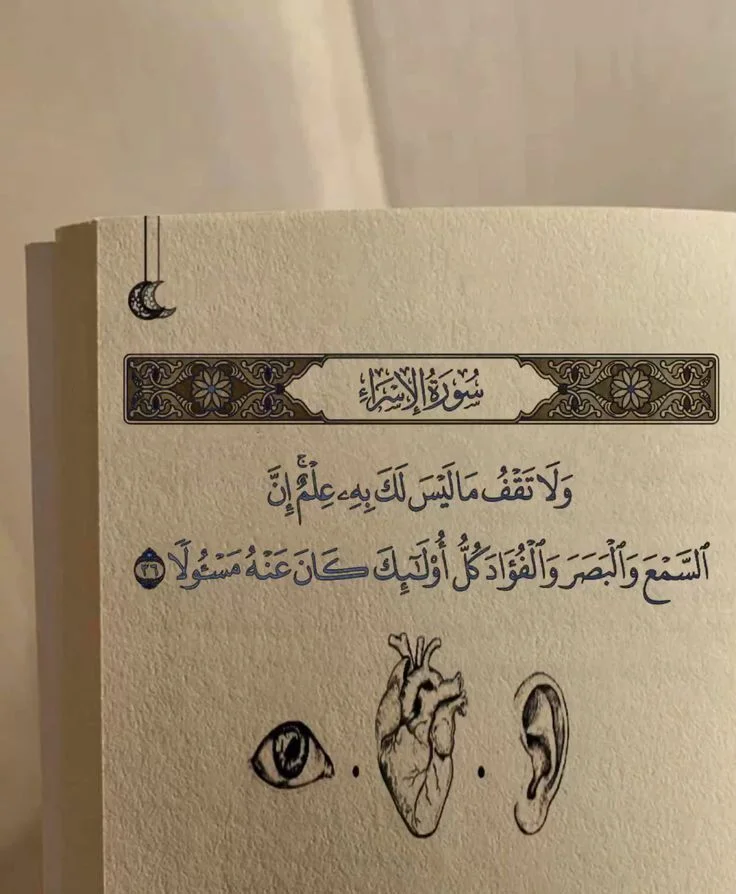 سُورَةُ الإِسْرَاءِ
وَلَا تَقْفُ مَا لَيْسَ لَكَ بِهِۦ عِلْمٌۚ إِنَّ
ٱلسَّمْعَ وَٱلْبَصَرَ وَٱلْفُؤَادَ كُلُّ أُوْلَٰٓئِكَ كَانَ عَنْهُ مَسْـُٔولًا ٣٦